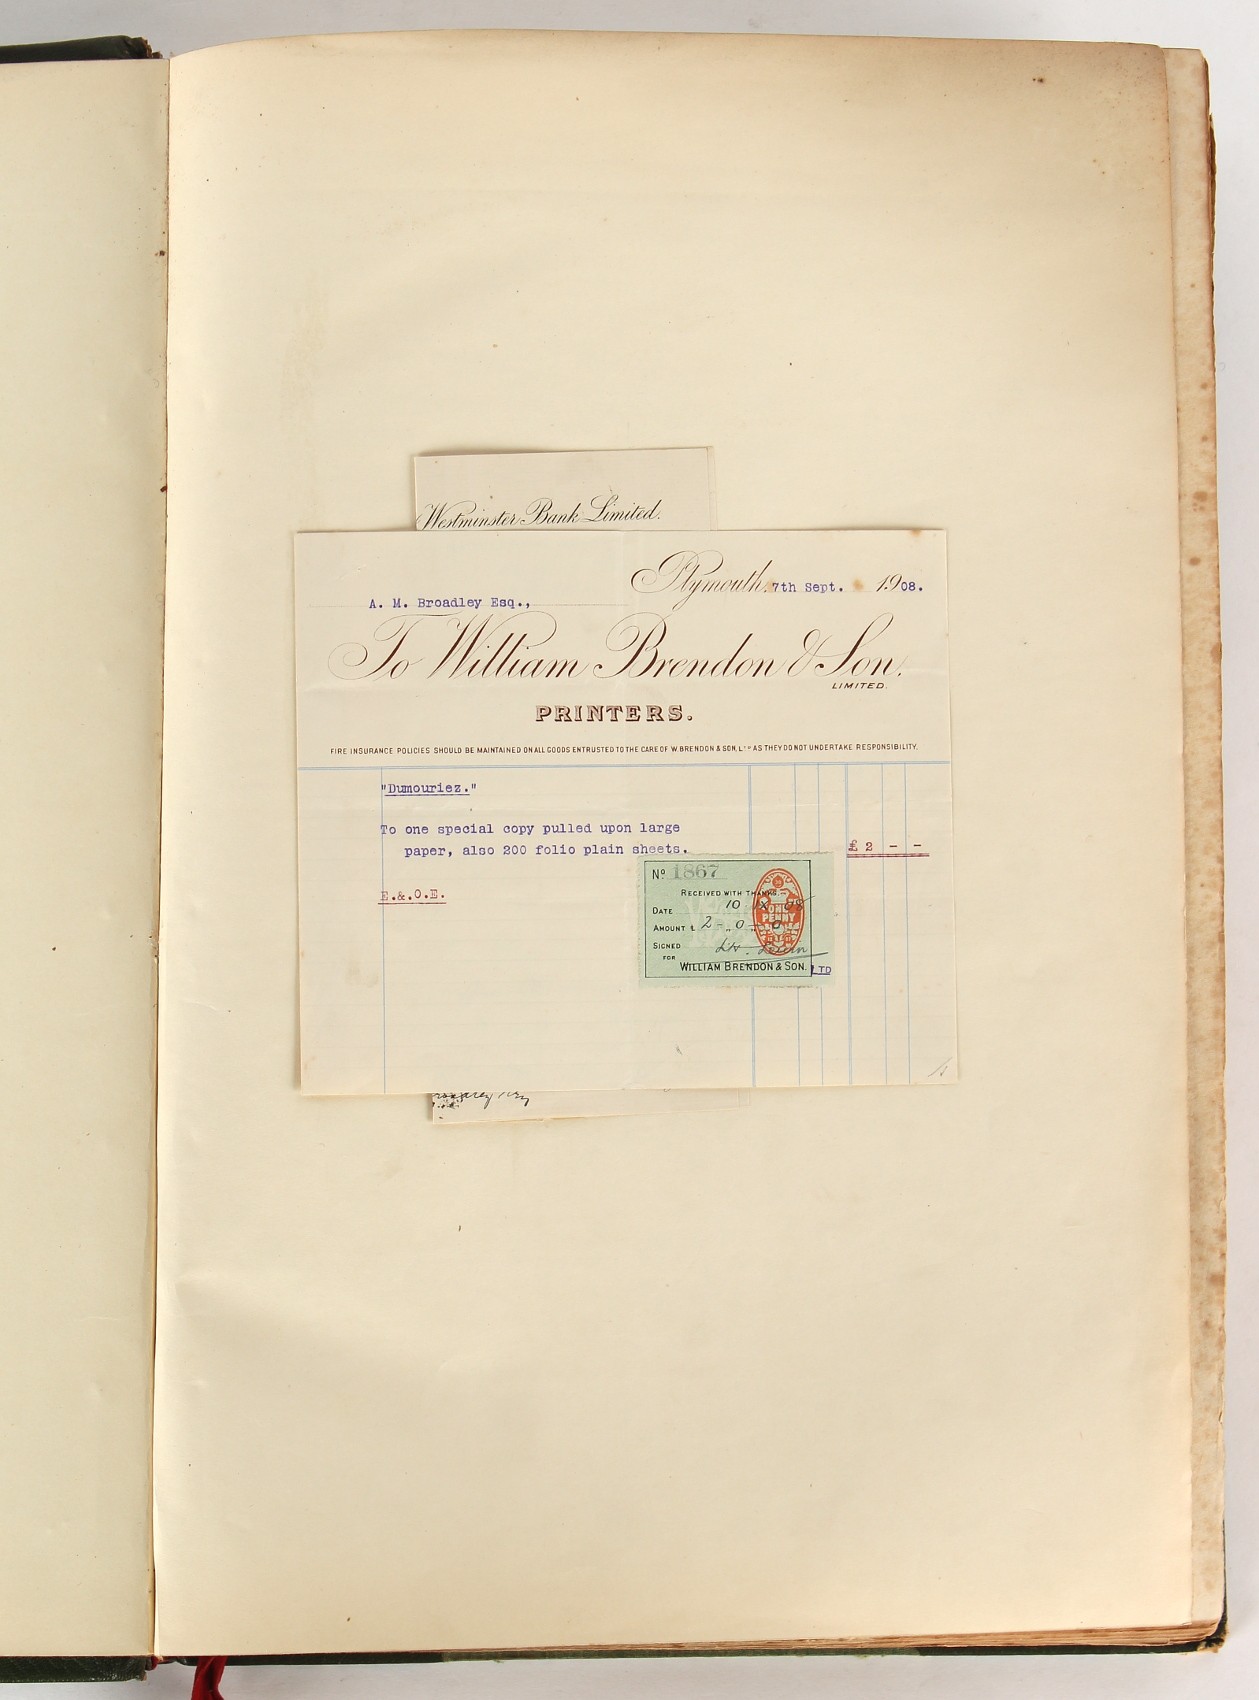 Westminster Bank Limited.
Plymouth, 7th Sept. 1908.
A. M. Broadley Esq.,
To William Brendon & Son,
LIMITED.
PRINTERS.
FIRE INSURANCE POLICIES SHOULD BE MAINTAINED ON ALL GOODS ENTRUSTED TO THE CARE OF W. BRENDON & SON, LTD AS THEY DO NOT UNDERTAKE RESPONSIBILITY.
"Dumouriez."
To one special copy pulled upon large
paper, also 200 folio plain sheets. £ 2 - -
E.&.O.E.
No 1867
RECEIVED WITH THANKS.
DATE 10 IX 08
ONE
PENNY
AMOUNT £ 2 - 0 - 0
SIGNED
FOR
WILLIAM BRENDON & SON. LTD